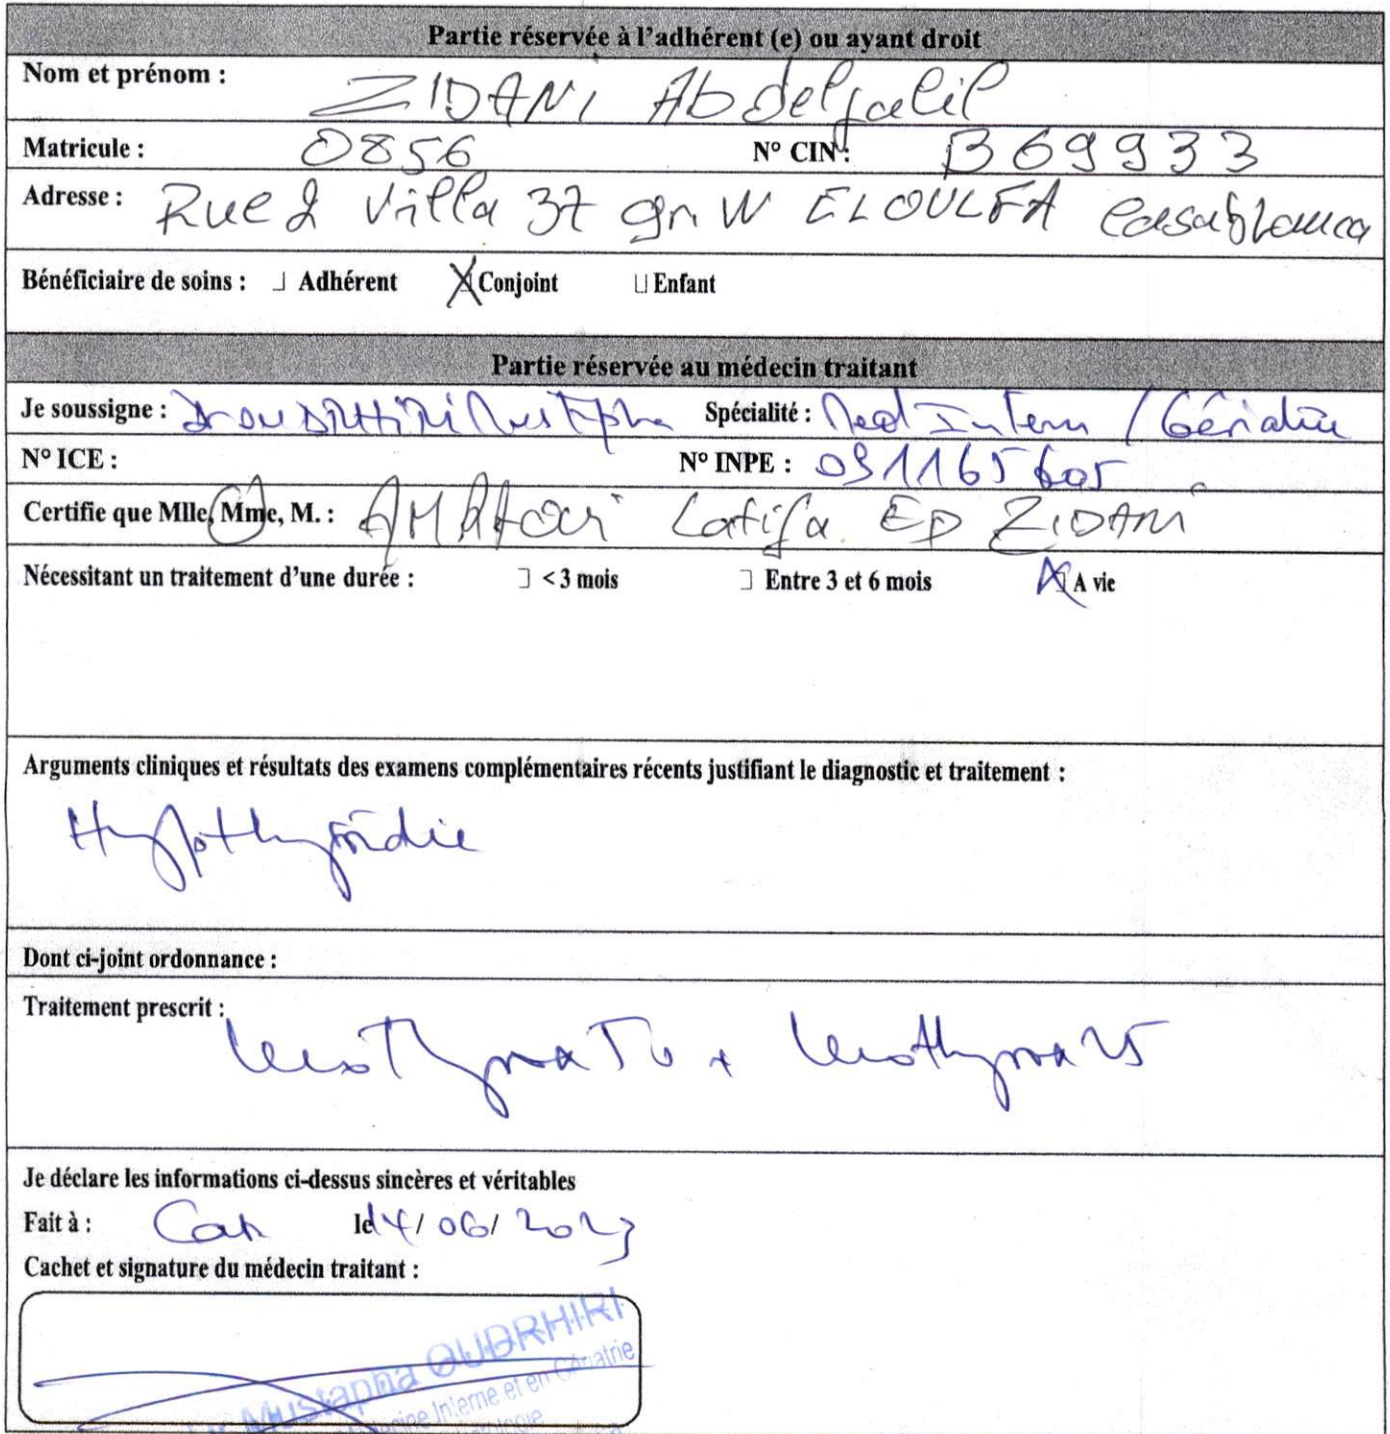 Partie réservée à l'adhérent (e) ou ayant droit
Nom et prénom : ZIDANI Abdeljalil
Matricule : 0856 N° CIN : B69933
Adresse : Rue 2 Villa 37 gr W ELOULFA Casablanca
Bénéficiaire de soins : Adhérent Conjoint Enfant
Partie réservée au médecin traitant
Je soussigne : Dr OUDRHIRI Mustapha Spécialité : Med Intern / Gériatrie
N° ICE : N° INPE : 091165605
Certifie que Mlle, Mme, M. : Latifa EP ZIDANI
Nécessitant un traitement d'une durée : < 3 mois Entre 3 et 6 mois A vie
Arguments cliniques et résultats des examens complémentaires récents justifiant le diagnostic et traitement :
Hypothyroïdie
Dont ci-joint ordonnance :
Traitement prescrit :
Levothyrox 50 + Levothyrox 25
Je déclare les informations ci-dessus sincères et véritables
Fait à : Casa le 14/06/2023
Cachet et signature du médecin traitant :
Dr Mustapha OUDRHIRI
Médecine Interne et en Gériatrie